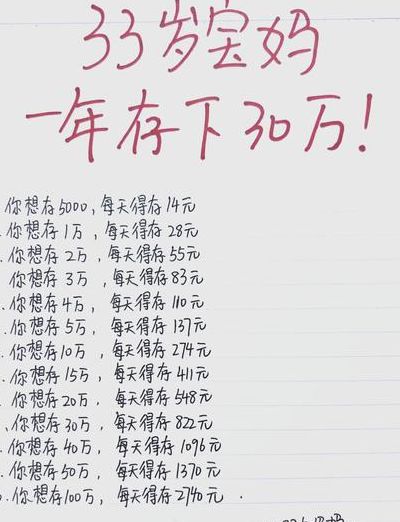 33岁宝妈
一年存下30万!
你想存5000，每天得存14元
.你想存1万，每天得存28元
.你想存2万，每天得存55元
你想存3万，每天得存83元
.你想存4万，每天得存110元
.你想存5万，每天得存137元
.你想存10万，每天得存274元
.你想存15万，每天得存411元
.你想存20万，每天得存548元
、你想存30万，每天得存822元
.你想存40万，每天得存1096元
.你想存50万，每天得存1370元
.你想存100万，每天得存2740元.